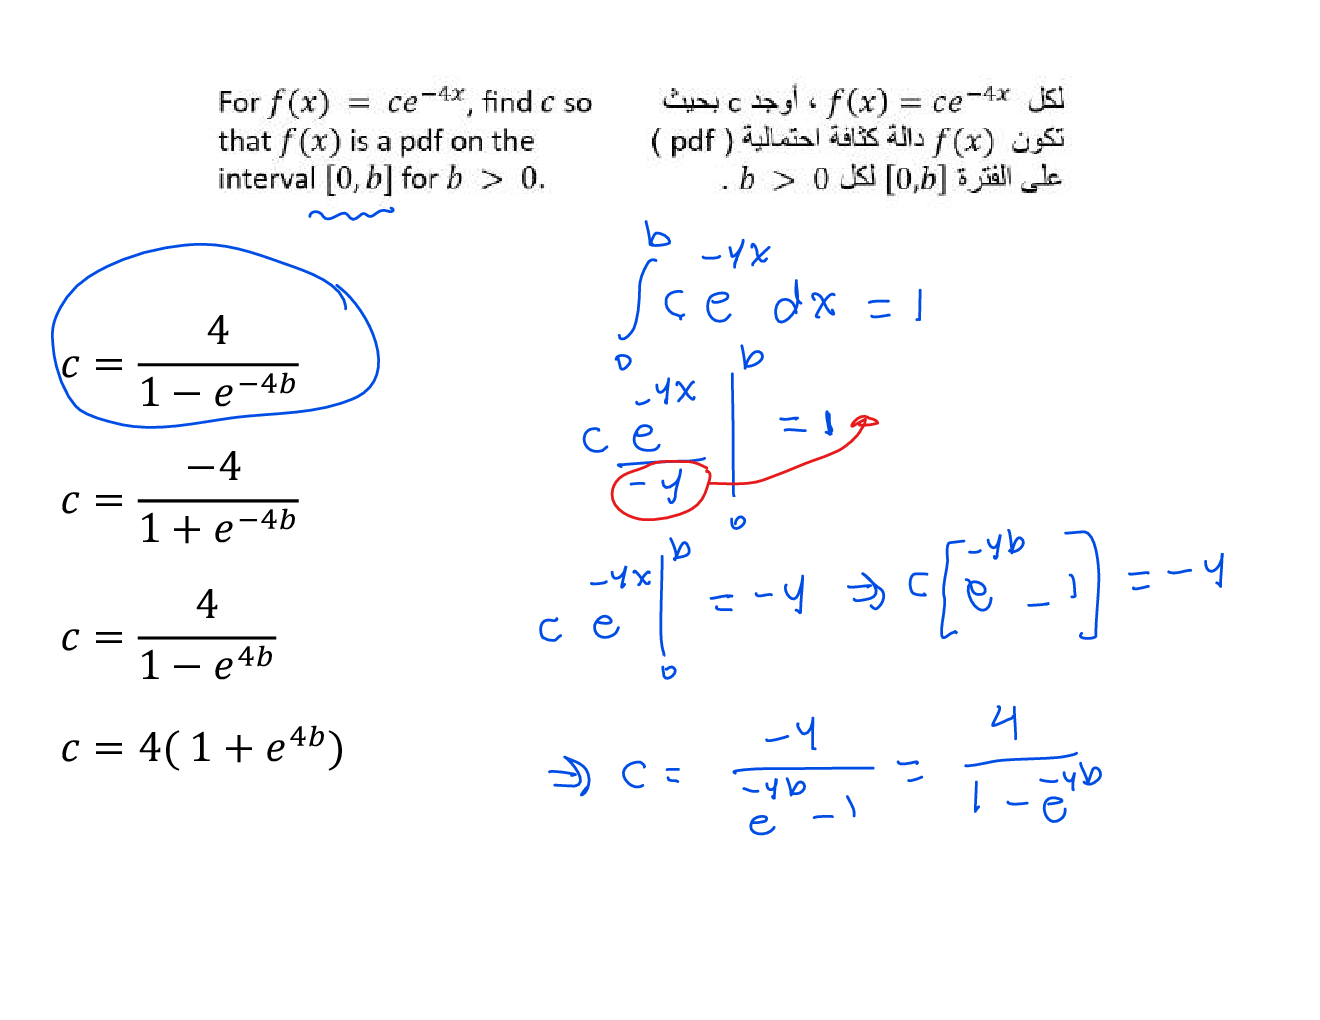 For f(x) = ce^{-4x}, find c so
that f(x) is a pdf on the
interval [0, b] for b > 0.
لكل f(x) = ce^{-4x} ، أوجد c بحيث
تكون f(x) دالة كثافة احتمالية ( pdf )
على الفترة [0,b] لكل b > 0 .
c = \frac{4}{1 - e^{-4b}}
c = \frac{-4}{1 + e^{-4b}}
c = \frac{4}{1 - e^{4b}}
c = 4( 1 + e^{4b})
\int_0^b c e^{-4x} dx = 1
c \frac{e^{-4x}}{-4} |_0^b = 1
c e^{-4x} |_0^b = -4 ⇒ c [e^{-4b} - 1] = -4
⇒ c = \frac{-4}{e^{-4b} - 1} = \frac{4}{1 - e^{-4b}}